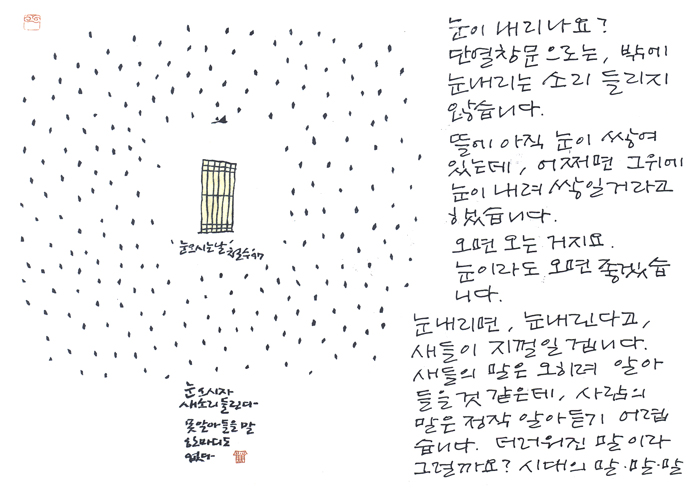 눈이 내리나요?
단열창문으로는, 밖에
눈내리는 소리 들리지
않습니다.
뜰에 아직 눈이 쌓여
있는데, 어쩌면 그위에
눈이 내려 쌓일거라고
했습니다.
오면 오는 거지요.
눈이라도 오면 좋겠습
니다.
눈내리면, 눈내린다고,
새들이 지껄일겝니다.
새들의 말은 오히려 알아
들을것 같은데, 사람의
말은 정작 알아듣기 어렵
습니다. 더러워진 말이라
그럴까요? 시대의 말·말·말
'눈오시는날' 철수 '97
눈오시자
새소리 들린다-
못알아들을 말
한마디도
없다-